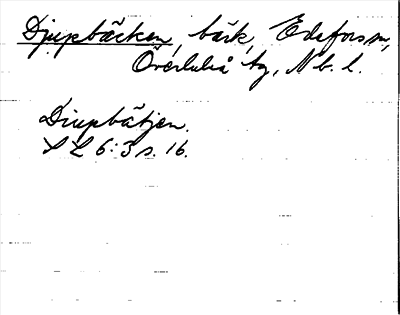 Djupbäcken, bäck, Edeforsm,
Överluleå tg, Nb. l.
Diupbätjen.
S L 6:3 s. 16.